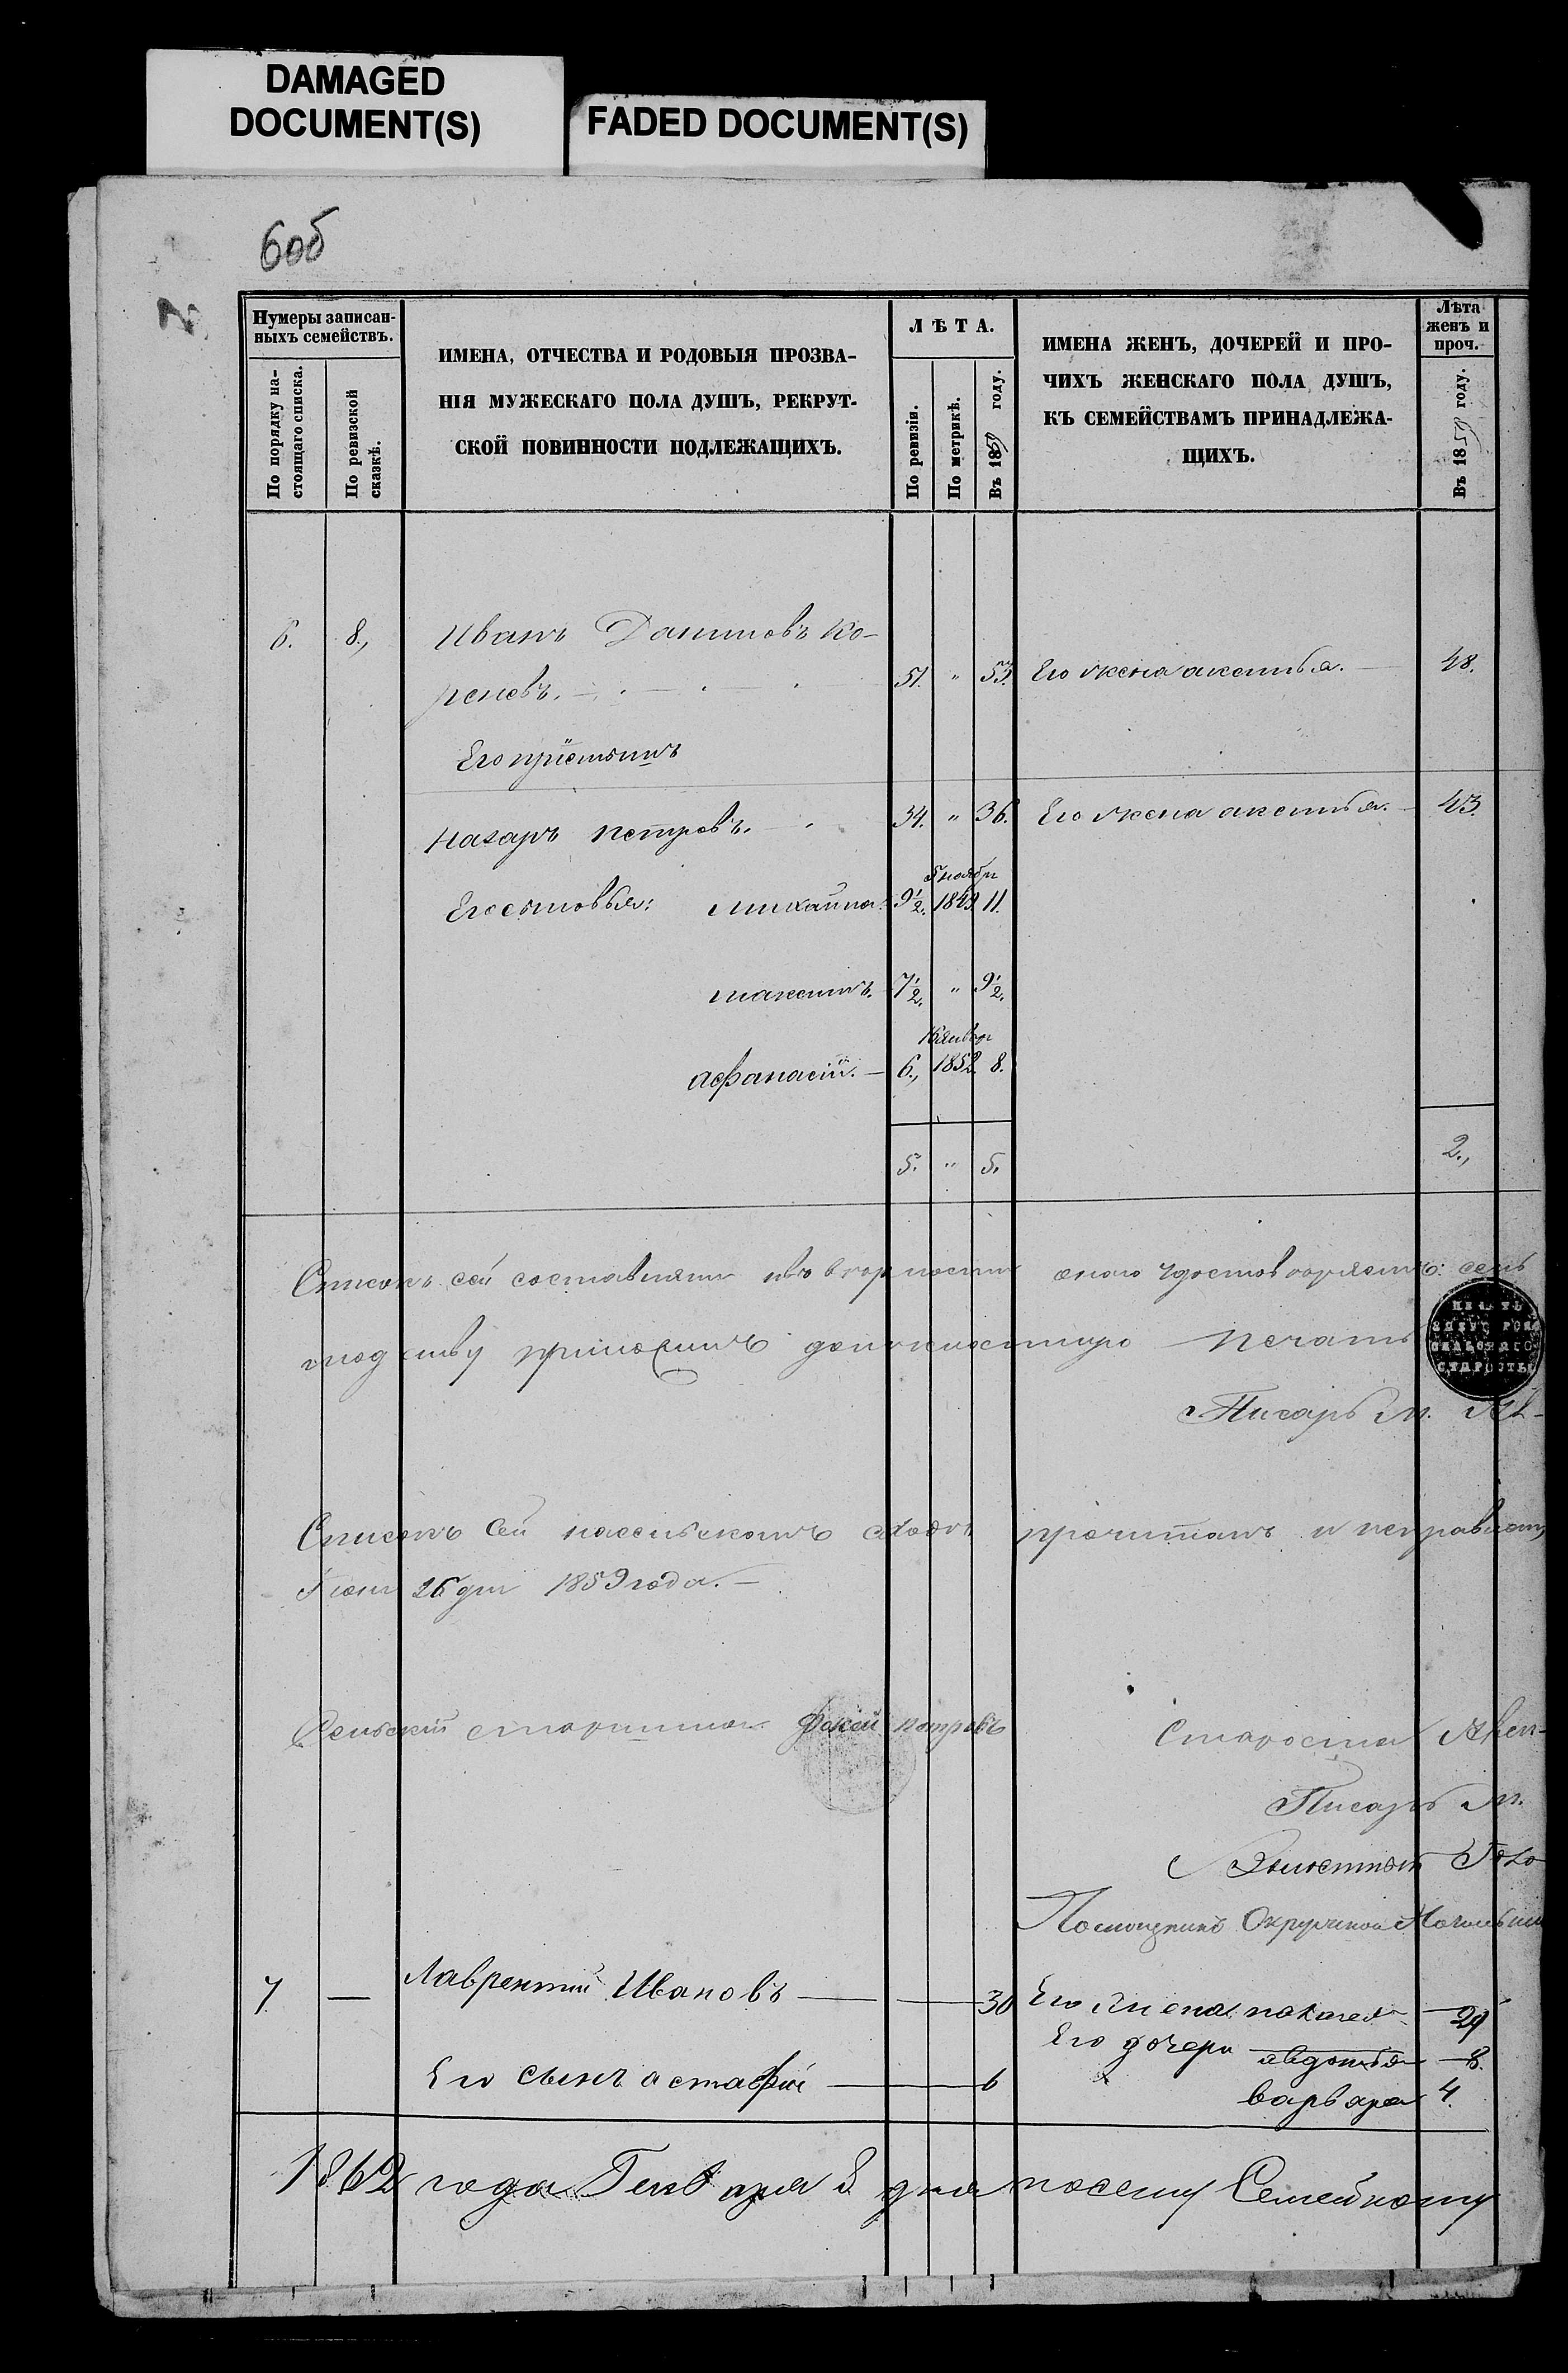 DAMAGED
DOCUMENT(S)
FADED DOCUMENT(S)
6об
Нумеры записан-
ныхъ семействъ.
По порядку на-
стоящаго списка.
По ревизской
сказкѣ.
ИМЕНА, ОТЧЕСТВА И РОДОВЫЯ ПРОЗВА-
НІЯ МУЖЕСКАГО ПОЛА ДУШЪ, РЕКРУТ-
СКОЙ ПОВИННОСТИ ПОДЛЕЖАЩИХЪ.
ЛѢТА.
По ревизіи.
По метрикѣ.
Въ 1859 году.
ИМЕНА ЖЕНЪ, ДОЧЕРЕЙ И ПРО-
ЧИХЪ ЖЕНСКАГО ПОЛА ДУШЪ,
КЪ СЕМЕЙСТВАМЪ ПРИНАДЛЕЖА-
ЩИХЪ.
Лѣта
женъ и
проч.
Въ 1859 году.
6. 8., Иванъ Даниловъ Ко-
реневъ. 51. " 53. Его жена аксинья. 48.
Его пріемышъ
Назаръ Петровъ. 34. " 36. Его жена аксинья. 43.
5 ноября
Его сыновья: михайла. 9½. 1849 11.
максимъ. 7½. " 9½.
Январ
афанасій. 6., 1852. 8.
5. " 5. 2.,
Списокъ сей составленъ въ вѣрности онаго удостовѣряемъ:
приложеніемъ должностную печать
ПЕЧАТЬ
СЕЛЬСКАГО
СТАРОСТЫ
Писарь М. Ав-
Списокъ сей насельскомъ сходѣ прочитанъ и исправленъ
Іюня 26 дня 1859 года.
Сельскій старшина Фокей Петровъ
Староста
Писарь М.
Волостной Голо
Помощникъ Окружнаго Начальни
7 — Лаврентій Ивановъ 30 Его жена пелагея 29
Его дочери авдотья 8.
Его сынъ астафій 6
варвара 4.
1862 года Генваря 8 дня посему Семейному